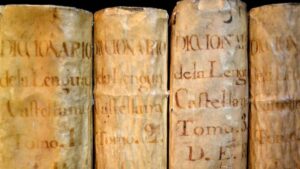 DICCIONARIO
de la Lengua
Castellana
Tomo. 1.
DICCIONARIO
de la Lengua
Castellana
Tomo. 2.
DICCIONA
de la Leng
Castellan
Tomo. 3.
D. E.
DICCION
de la